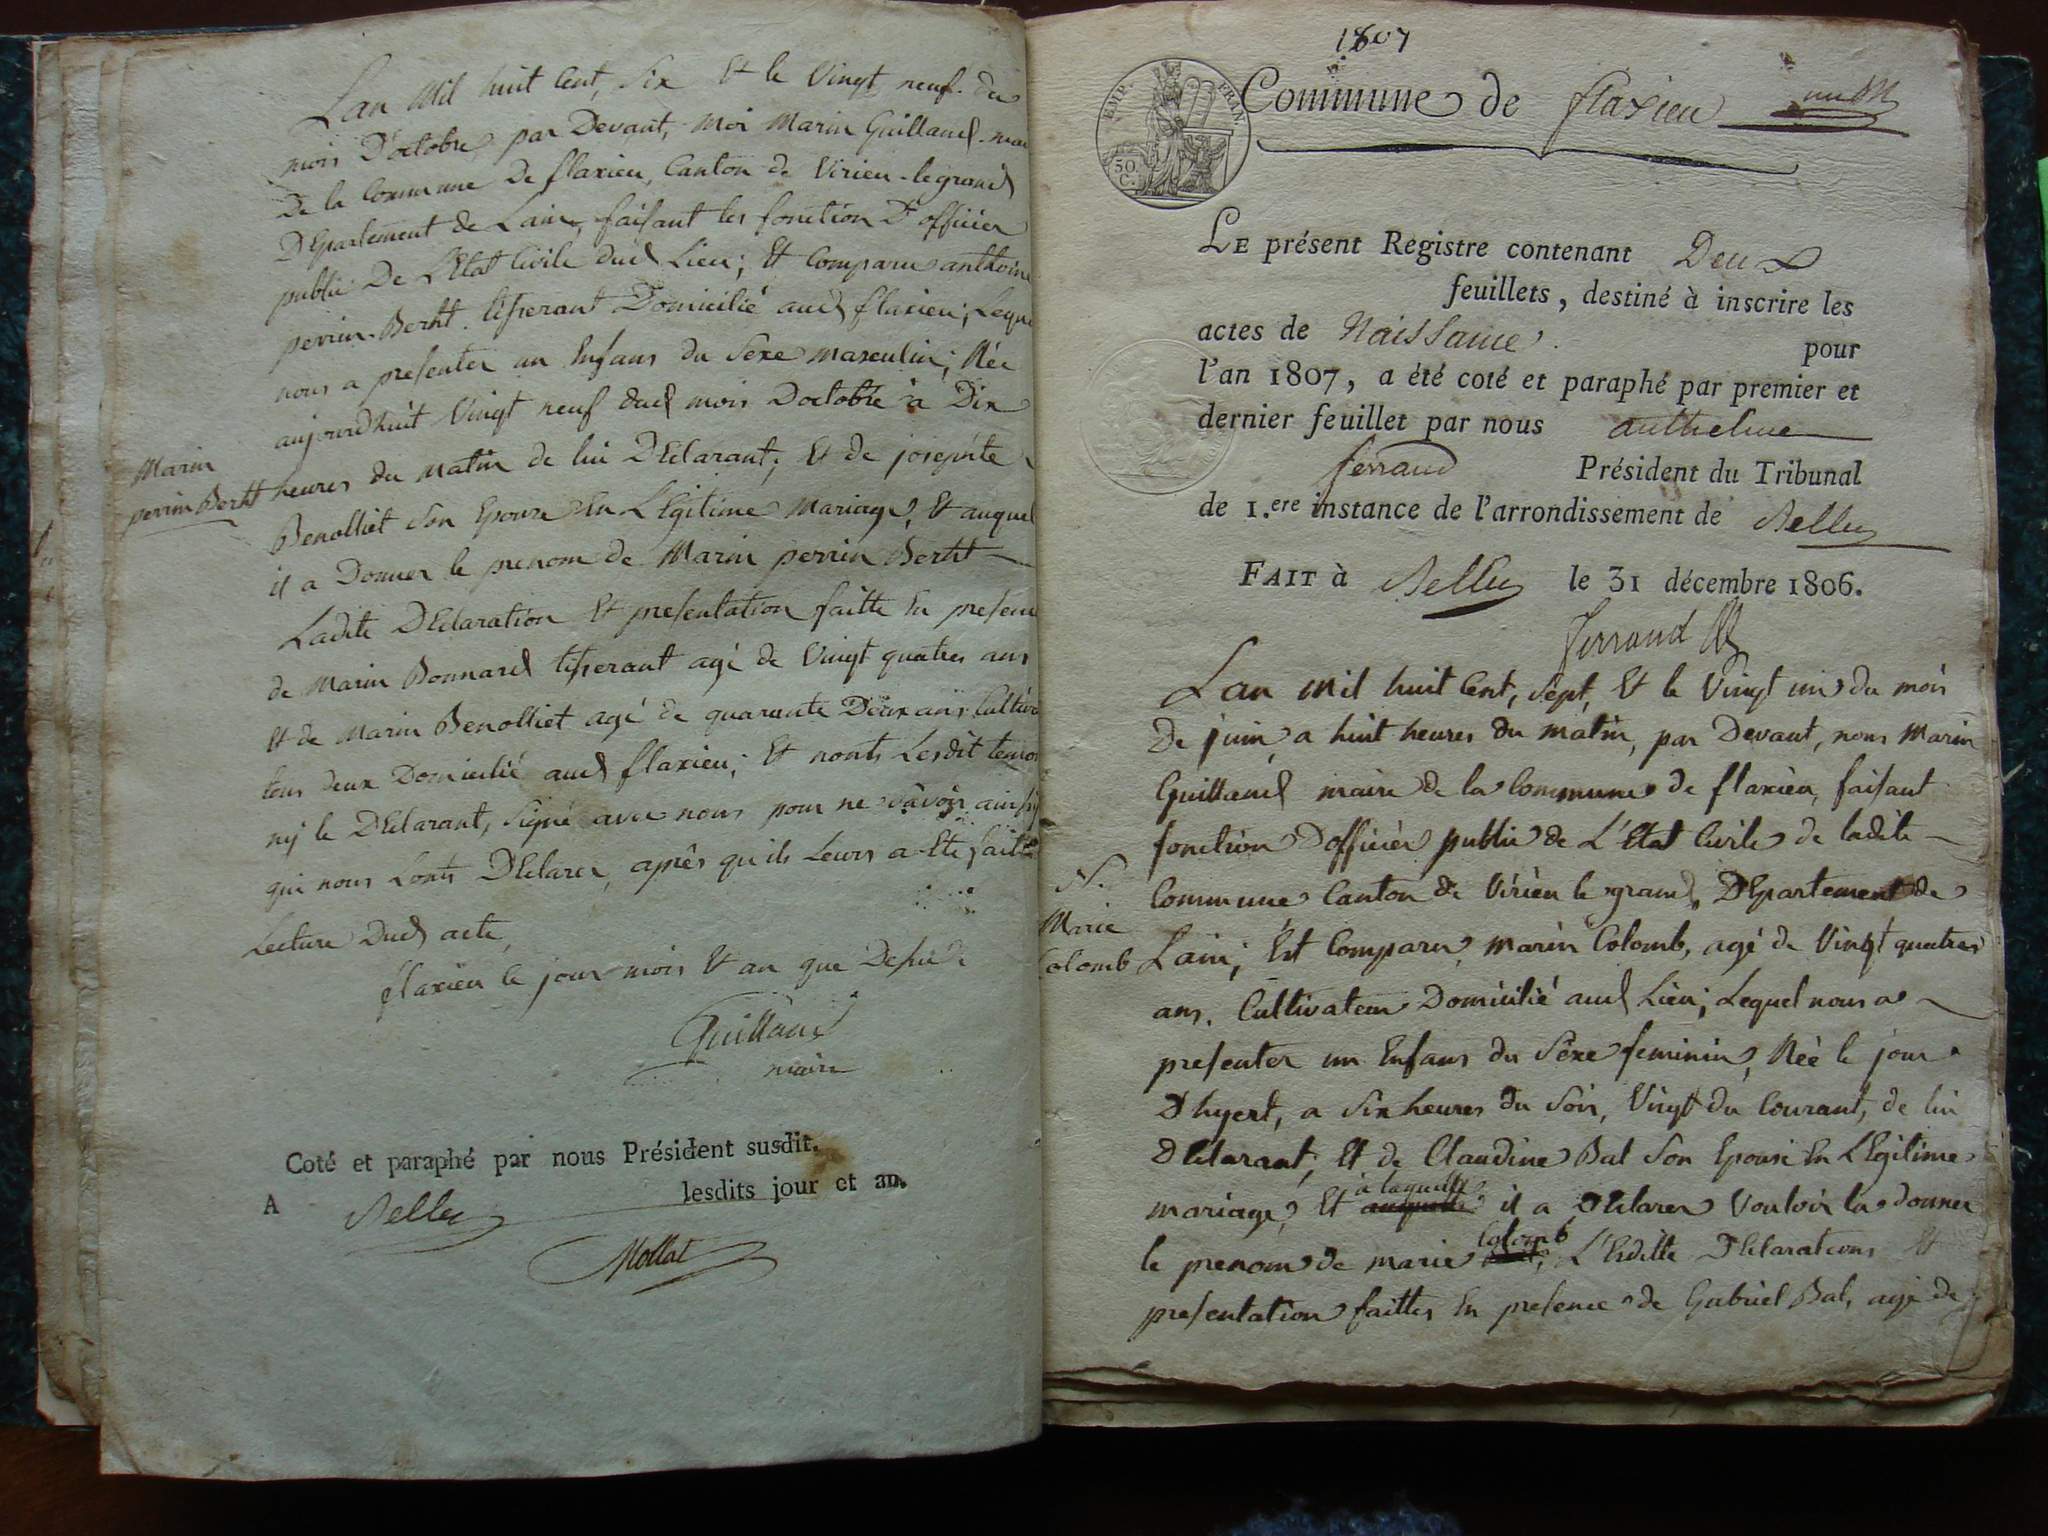 Lan Mil huit Cent, Six Et le Vingt neuf du
mois D'octobre par Devant, moi Marin Guilland mai
De la Commune De flaxieu, Canton de Virieu-legrand
DEpartement de Lain, faisant les fonction D'officier
public De L'Etat Civile dud Lieu; Et Comparu anthoine
perrin-Bertht tisserant Domicilié aud flaxieu; Leque
nous a presenter un Enfans du Sexe masculin; Née
aujourdhuit Vingt neuf dud mois Doctobre à Dix
Marin
perrin Bertht
heures du matin de lui DEclarant; Et de josephte
Benolliet Son Epouse En LEgitime Mariage, Et auquel
il a Donner le prenom de Marin perrin Bertht
Ladite DEclaration Et presentation faitte En presen
de Marin Bonnard tisserant agé de Vingt quatres ans
Et de Marin Benolliet agé de quarante Deux ans Cultiva
tous deux Domicilié aud flaxieu; Et nonts Lesdit temoi
nÿ le DEclarant, Signé avec nous pour ne Savoir ainsi
qui nous Lonts DEclarer, après qu'ils Leurs a Eté faitte
Lecture Dud acte,
flaxieu le jour mois Et an que Dessu
Guilland
maire
Coté et paraphé par nous Président susdit.
A Belley lesdits jour et an.
Mollat
1807
EMP. FRAN.
50 C.
Commune de flaxieu
LE présent Registre contenant Deux
feuillets, destiné à inscrire les
actes de Naissance. pour
l'an 1807, a été coté et paraphé par premier et
dernier feuillet par nous anthelme
ferrand Président du Tribunal
de 1.ere instance de l'arrondissement de Belley
FAIT à Belley le 31 décembre 1806.
ferrand
Lan Mil huit Cent, Sept, Et le Vingt un du mois
De juin a huit heures du matin, par Devant, nous Marin
Guilland maire de la Commune de flaxieu, faisant
fonction D'officier public de L'Etat Civile de ladite
N.
Marie
Colomb
Commune Canton de Virieu le grand, DEpartement de
Lain; Est Comparu, marin Colomb, agé de Vingt quatres
ans, Cultivateur Domicilié aud Lieu; Lequel nous a
presenter un Enfans du Sexe feminin, Née le jour
D'hyert, a Six heures du Soir, Vingt du Courant, de lui
DEclarant; Et de Claudine Bal Son Epouse En LEgitime
mariage, Et à laquelle il a DEclarer Vouloir la donner
le prenom de marie Colomb L'Esditte DEclarations Et
presentation faittes En presence de Gabriel Bal, agé de